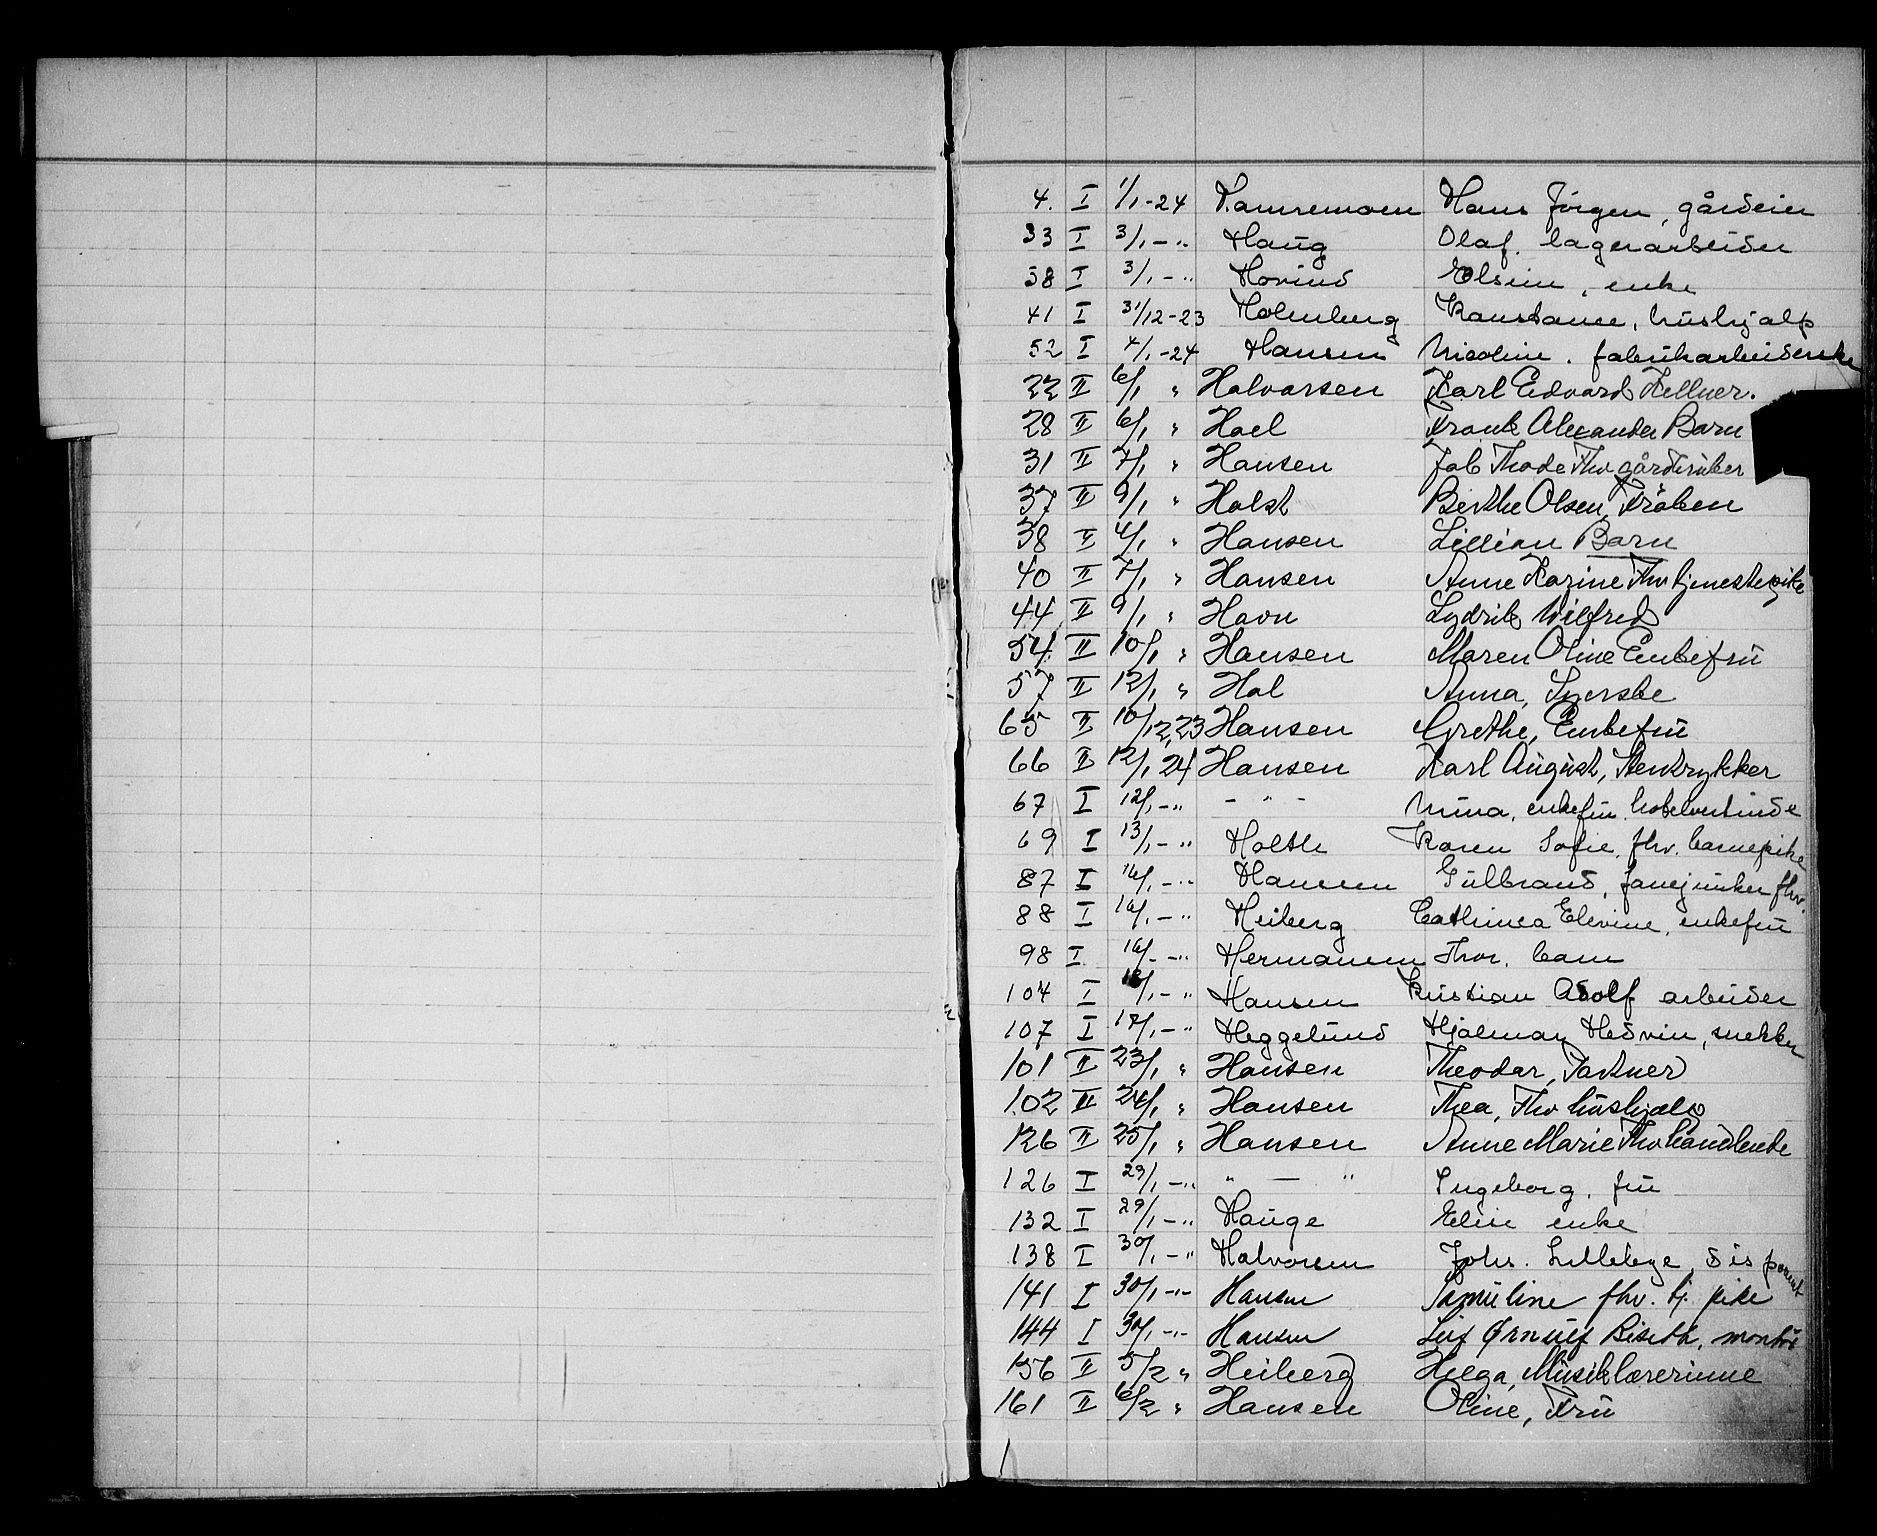 4. I 1/1-24 Hans Jørgen, gårdeier
33 I 3/1-" Haug Olaf. lagerarbeider
38 I 3/1-" Hovind Elsine, enke
41 I 31/12-23 Holmberg Konstanse, hushjalp
52 I 4/1-24 Hansen Nicoline. fabrikarbeiderske
22 II 6/1 " Halvorsen Karl Edvard Kellner.
28 II 6/1 " Hoel Frank Alexander Barn
31 II 7/1 " Hansen Jab Thode Fhv gårdbruker
37 II 9/1 " Holst Berthe Olsen, Frøken
38 II 4/1 " Hansen Lillian Barn
40 II 7/1 " Hansen Anne Karine Fhv tjenestepike
44 II 9/1 " Havn Lydrik Wilfred
54 II 10/1 " Hansen Maren Oline Enkefru
57 II 12/1 " Hol Anna, Syerske
65 II 10/12,23 Hansen Grethe, Enkefru
66 II 12/1 24 Hansen Karl August, Stentrykker
67 I 12/1-" - " - Nina, enkefru, hotelvertinde
69 I 13/1-" Holth Karen Sofie, fhv. barnepike
87 I 16/1-" Hansen Gulbrand, fanejunker fhv.
88 I 16/1-" Heiberg Cathinca Elevine, enkefru
98 I 16/-" Hermansen Thor, barn
104 I 18/1-" Hansen Kristian Adolf arbeider
107 I 17/1-" Heggelund Hjalmar Hedvin, snekker
101 II 23/1 " Hansen Theodor, Partner
102 II 24/1 " Hansen Thea, Fhv hushjælp
126 II 25/1 " Hansen Anne Marie Fhv handlende
126 I 29/1-" " — " Ingeborg, fru
132 I 29/1-" Hauge Elin enke
138 I 30/1-" Halvorsen Johs. Lilleby, disponent
141 I 30/1-" Hansen Samuline fhv. tj. pike
144 I 30/1-" Hansen Leif Ørnulf Biseth, montør
156 II 5/2 " Heiberg Helga, Musiklærerinne
161 II 6/2 " Hansen Oline, Fru